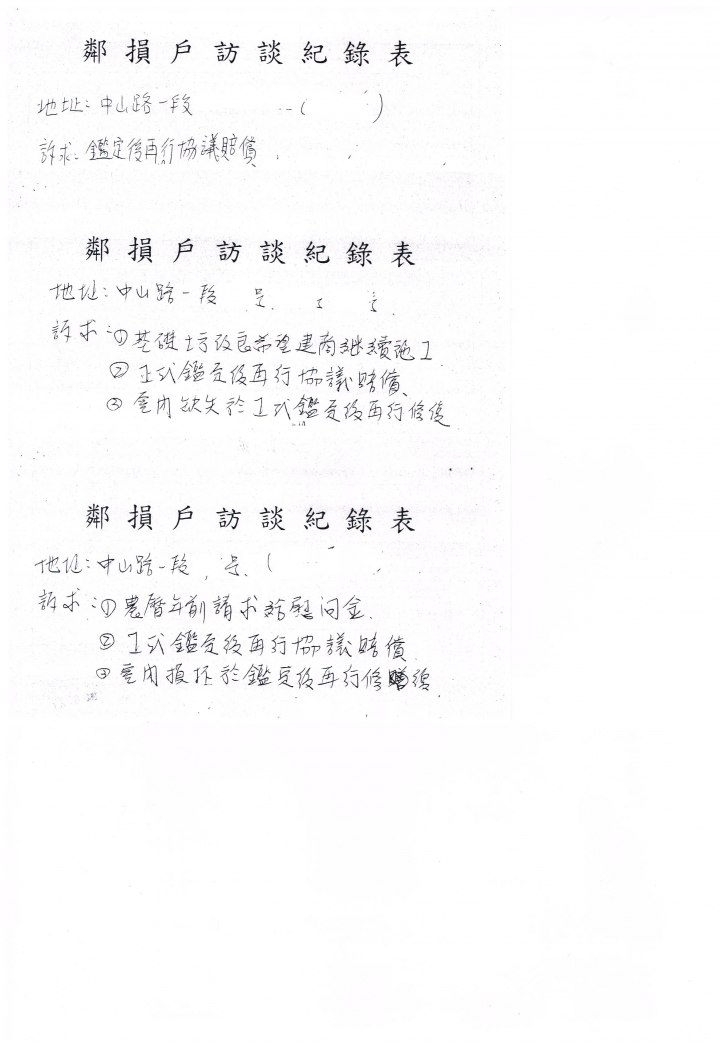 鄰損戶訪談紀錄表
地址：中山路一段 (　)
訴求：鑑定後再行協議賠償
鄰損戶訪談紀錄表
地址：中山路一段 号
訴求：①基礎土方改良希望建商継續施工
②正式鑑定後再行協議賠償
③室内缺失於正式鑑定後再行修復
鄰損戶訪談紀錄表
地址：中山路一段 号 (
訴求：①農曆年前請求給慰问金
②正式鑑定後再行協議賠償
③室内損坏於鑑定後再行修復